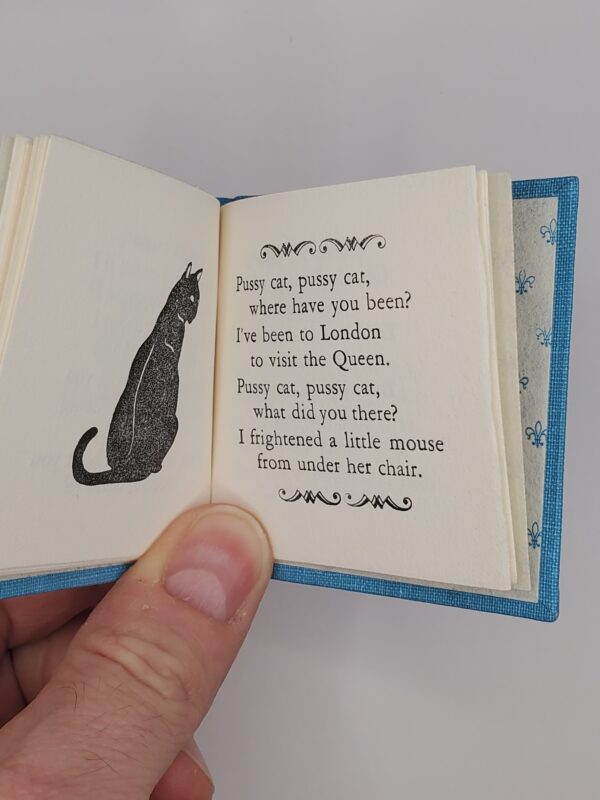 Pussy cat, pussy cat,
where have you been?
I've been to London
to visit the Queen.
Pussy cat, pussy cat,
what did you there?
I frightened a little mouse
from under her chair.